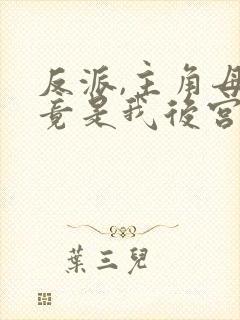 反派,主角母
竟是我後宮
葉三兒